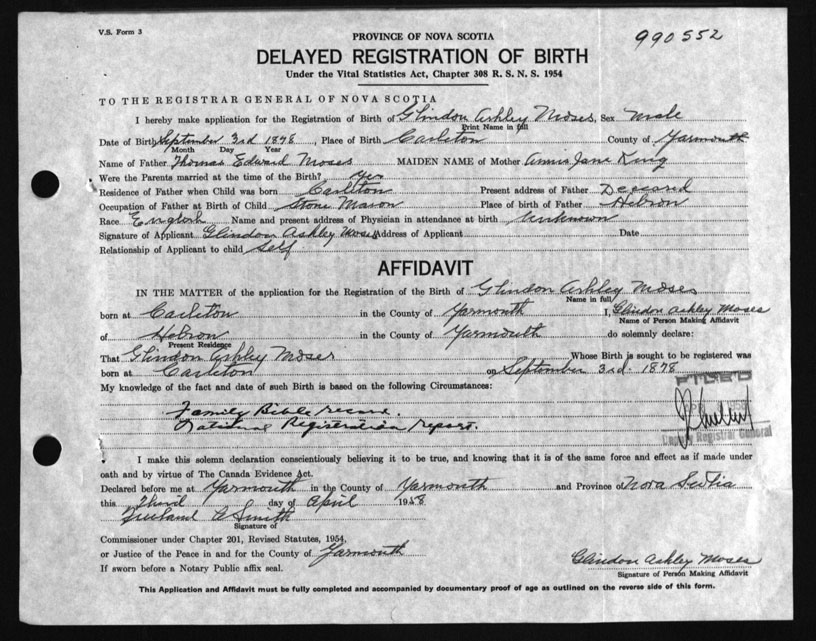 V.S. Form 3
PROVINCE OF NOVA SCOTIA
990552
DELAYED REGISTRATION OF BIRTH
Under the Vital Statistics Act, Chapter 308 R. S. N. S. 1954
TO THE REGISTRAR GENERAL OF NOVA SCOTIA
I hereby make application for the Registration of Birth of Glindon Ashley Moses, Sex Male
Print Name in full
Date of Birth September 3rd 1878, Place of Birth Carleton County of Yarmouth
Month Day Year
Name of Father Thomas Edward Moses MAIDEN NAME of Mother Annis Jane King
Were the Parents married at the time of the Birth? Yes
Residence of Father when Child was born Carlton Present address of Father Deceased
Occupation of Father at Birth of Child Stone Mason Place of birth of Father Hebron
Race English Name and present address of Physician in attendance at birth Unknown
Signature of Applicant Glindon Ashley Moses Address of Applicant Date
Relationship of Applicant to child Self
AFFIDAVIT
IN THE MATTER of the application for the Registration of the Birth of Glindon Ashley Moses
Name in full
born at Carleton in the County of Yarmouth I, Glindon Ashley Moses
Name of Person Making Affidavit
of Hebron in the County of Yarmouth do solemnly declare:
Present Residence
That Glindon Ashley Moses Whose Birth is sought to be registered was
born at Carleton on September 3rd 1878
My knowledge of the fact and date of such Birth is based on the following Circumstances:
FILED
Family Bible record.
National Registration report.
Deputy Registrar General
I make this solemn declaration conscientiously believing it to be true, and knowing that it is of the same force and effect as if made under
oath and by virtue of The Canada Evidence Act.
Declared before me at Yarmouth in the County of Yarmouth and Province of Nova Scotia
this Third day of April 1958
A Smith
Signature of
Commissioner under Chapter 201, Revised Statutes, 1954,
or Justice of the Peace in and for the County of Yarmouth
If sworn before a Notary Public affix seal.
Glindon Ashley Moses
Signature of Person Making Affidavit
This Application and Affidavit must be fully completed and accompanied by documentary proof of age as outlined on the reverse side of this form.